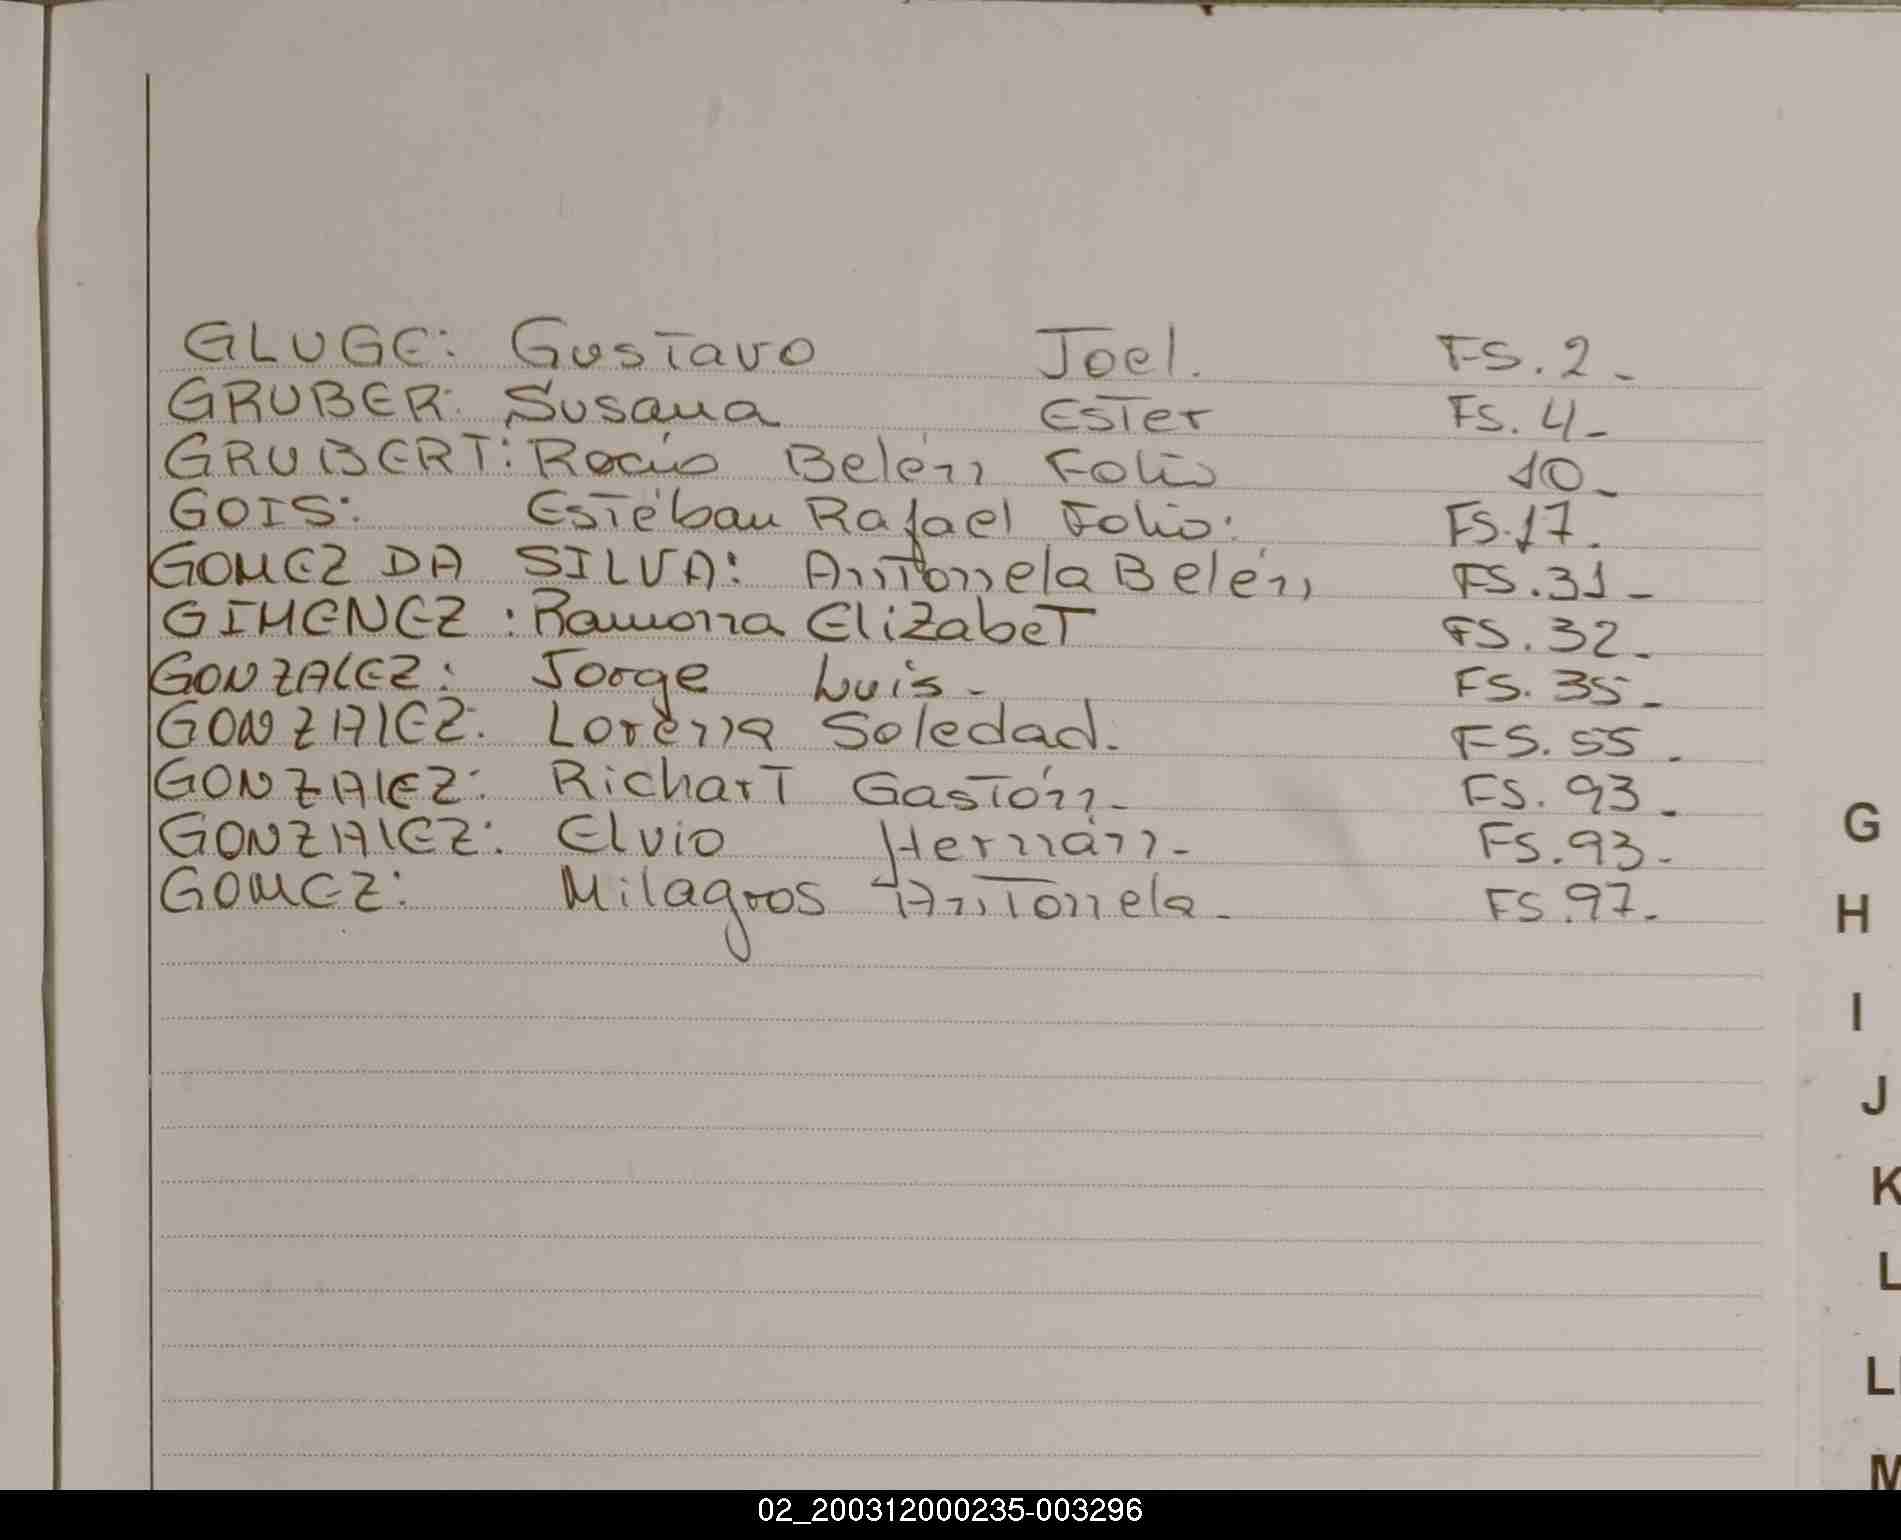 GLUGE: Gustavo Joel. FS. 2_
GRUBER: Susana Ester FS. 4_
GRUBERT: Rocío Belén Folio 10_
GOIS: Estéban Rafael Folio: FS.17.
GOMEZ DA SILVA: Antonela Belén FS.31_
GIMENEZ: Ramona Elizabet FS. 32_
GONZALEZ: Jorge Luis_ FS. 35_
GONZALEZ: Lorena Soledad. FS. 55_
GONZALEZ: Richart Gastón_ FS. 93_
GONZALEZ: Elvio Hernán_ FS.93_
GOMEZ: Milagros Antonela_ FS.97_
G
H
I
J
K
L
LL
M
02_200312000235-003296